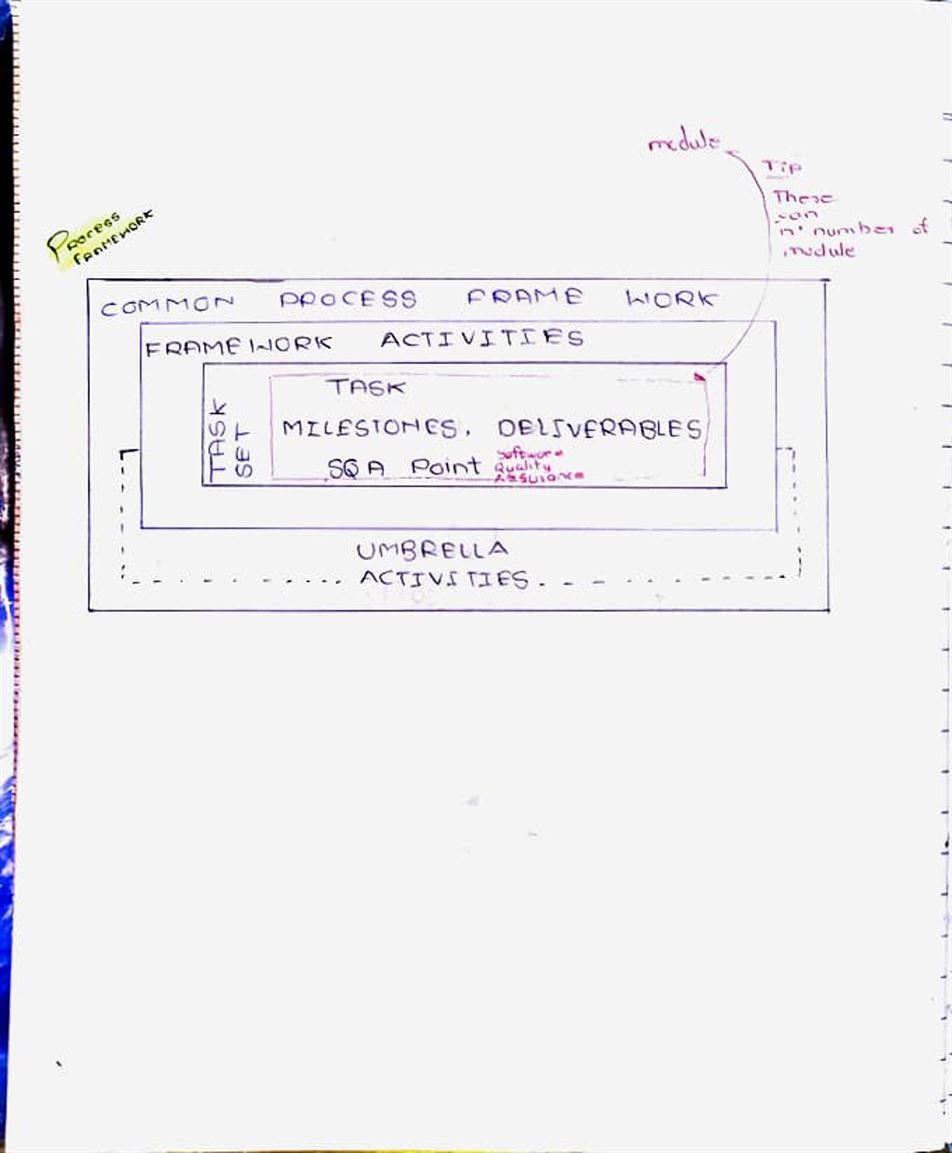 module
Tip
These
can
n' number of
module
PROCESS
FRAMEWORK
COMMON PROCESS FRAME WORK
FRAMEWORK ACTIVITIES
TASK SET
TASK
MILESTONES, DELIVERABLES
SQA Point
Software
Quality
Assurance
UMBRELLA
ACTIVITIES